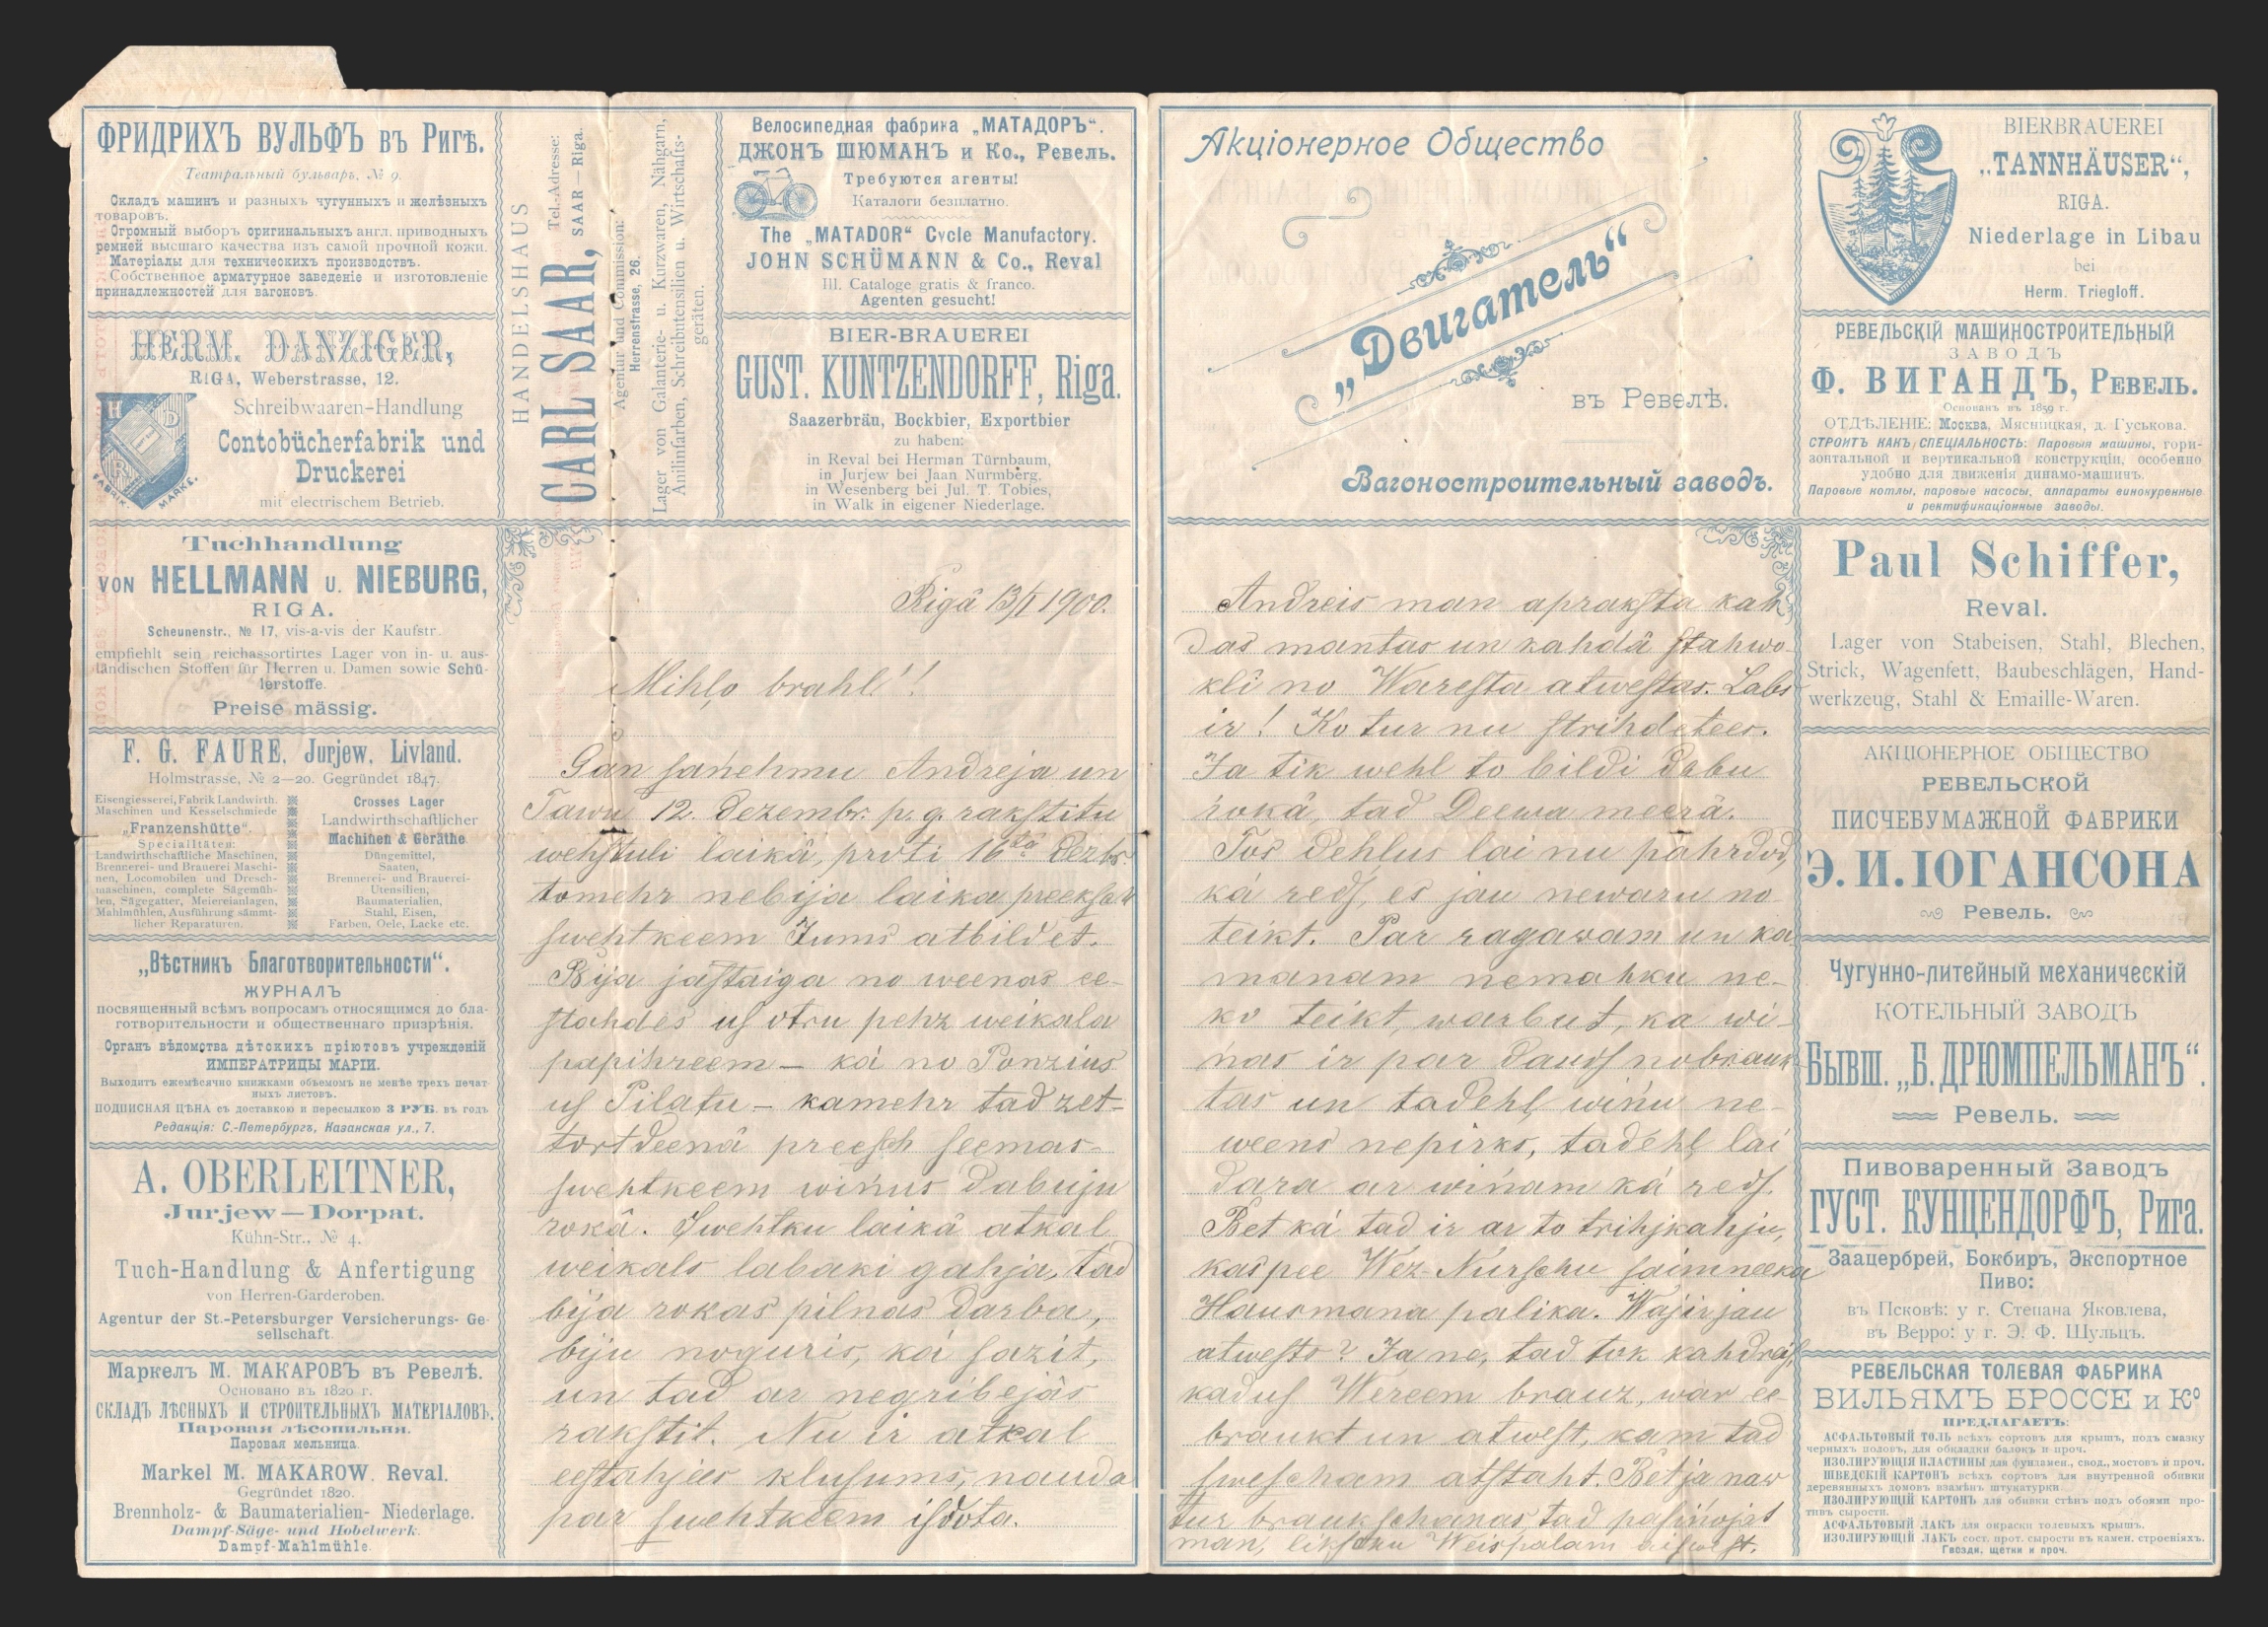 ФРИДРИХЪ ВУЛЬФЪ въ Ригѣ.
Театральный бульваръ, № 9.
Складъ машинъ и разныхъ чугунныхъ и желѣзныхъ
товаровъ.
Огромный выборъ оригинальныхъ англ. приводныхъ
ремней высшаго качества изъ самой прочной кожи.
Матеріалы для техническихъ производствъ.
Собственное арматурное заведеніе и изготовленіе
принадлежностей для вагоновъ.
HERM. DANZIGER,
RIGA, Weberstrasse, 12.
H D R
FABRIK. MARKE.
Schreibwaaren-Handlung
Contobücherfabrik und
Druckerei
mit electrischem Betrieb.
Tuchhandlung
VON HELLMANN U. NIEBURG,
RIGA.
Scheunenstr., № 17, vis-a-vis der Kaufstr.
empfiehlt sein reichassortirtes Lager von in- u. aus-
ländischen Stoffen für Herren u. Damen sowie Schü-
lerstoffe.
Preise mässig.
F. G. FAURE, Jurjew, Livland.
Holmstrasse, № 2—20. Gegründet 1847.
Eisengiesserei, Fabrik Landwirth.
Maschinen und Kesselschmiede
„Franzenshütte“.
Specialitäten:
Landwirthschaftliche Maschinen,
Brennerei- und Brauerei Maschi-
nen, Locomobilen und Dresch-
maschinen, complete Sägemüh-
len, Sägegatter, Meiereianlagen,
Mahlmühlen, Ausführung sämmt-
licher Reparaturen.
Crosses Lager
Landwirthschaftlicher
Machinen & Geräthe
Düngemittel,
Saaten,
Brennerei- und Brauerei-
Utensilien,
Baumaterialien,
Stahl, Eisen,
Farben, Oele, Lacke etc.
„Вѣстникъ Благотворительности“.
ЖУРНАЛЪ
посвященный всѣмъ вопросамъ относящимся до бла-
готворительности и общественнаго призрѣнія.
Органъ вѣдомства дѣтскихъ пріютовъ учрежденій
ИМПЕРАТРИЦЫ МАРІИ.
Выходитъ ежемѣсячно книжками объемомъ не менѣе трехъ печат-
ныхъ листовъ.
ПОДПИСНАЯ ЦѢНА съ доставкою и пересылкою 3 РУБ. въ годъ
Редакція: С.-Петербургъ, Казанская ул., 7.
A. OBERLEITNER,
Jurjew—Dorpat.
Kühn-Str., № 4.
Tuch-Handlung & Anfertigung
von Herren-Garderoben.
Agentur der St.-Petersburger Versicherungs- Ge-
sellschaft.
Маркелъ М. МАКАРОВЪ въ Ревелѣ.
Основано въ 1820 г.
СКЛАДЪ ЛѢСНЫХЪ И СТРОИТЕЛЬНЫХЪ МАТЕРІАЛОВЪ.
Паровая лѣсопильня.
Паровая мельница.
Markel M. MAKAROW, Reval.
Gegründet 1820.
Brennholz- & Baumaterialien- Niederlage.
Dampf-Säge- und Hobelwerk.
Dampf-Mahlmühle.
HANDELSHAUS
Tel.-Adresse:
CARL SAAR, SAAR—Riga.
Agentur und Commission:
Herrenstrasse, 26.
Lager von Galanterie- u. Kurzwaren, Nähgarn,
Anilinfarben, Schreibutensilien u. Wirtschafts-
geräten.
Велосипедная фабрика „МАТАДОРЪ“.
ДЖОНЪ ШЮМАНЪ и Ко., Ревель.
Требуются агенты!
Каталоги безплатно.
The „MATADOR“ Cycle Manufactory.
JOHN SCHÜMANN & Co., Reval
Ill. Cataloge gratis & franco.
Agenten gesucht!
BIER-BRAUEREI
GUST. KUNTZENDORFF, Riga.
Saazerbräu, Bockbier, Exportbier
zu haben:
in Reval bei Herman Türnbaum,
in Jurjew bei Jaan Nurmberg.
in Wesenberg bei Jul. T. Tobies,
in Walk in eigener Niederlage.
Rigâ 13/I 1900.
Mihļo brahl'!
Gan saņehmu Andreja un
Tawu 12. dezembr. p. g. rakstitu
wehstuli laikâ, proti 16ta dezbr.
tomehr nebija laika preeksch
swehtkeem Jums atbildet.
Bija jastaiga no weenas ee-
stahdes us otru pehz weikala
papihreem — kâ no Ponzius
us Pilatu — kamehr tad zet-
tortdeenâ preesch seemas-
swehtkeem wiņus dabuju
rokâ. Swehtku laikâ atkal
weikals labaki gahja, tad
bija rokas pilnas darba,
biju noguris, kâ sazit,
un tad ar negribejâs
rakstit. Nu ir atkal
eestahjees klusums, nauda
par swehtkeem isdota.
Акціонерное Общество
„Двигатель“
въ Ревелѣ.
Вагоностроительный заводъ.
Andreis man apraksta kah
das mantas un kahdâ stahwo-
klî no Waresta atwestas. Labs
ir! Ko tur nu strihdetees.
Ja tik wehl to bildi dabu
rokâ, tad Deewa meerâ.
Tos dehlus lai nu pahrdod,
kâ reds, es jau newaru no-
teikt. Par ragawam un ka-
manam nemahku ne-
ko teikt, warbut, ka wi-
ņas ir par daudz nobrauk-
tas un tadehļ wiņu ne-
weens nepirks, tadehļ lai
dara ar wiņam kâ reds.
Bet kâ tad ir ar to trihjkahju,
kas pee Wez-Nurschu saimneeka
Hausmana palika. Waj ir jau
atwests? Ja ne, tad tak kahdreis,
kad us Wereem brauz, war ee-
braukt un atwest, kam tad
swescham atstaht. Bet ja naw
tur braukschanas, tad pasiņojat
man, likschu Weispalam
BIERBRAUEREI
„TANNHÄUSER“,
RIGA.
Niederlage in Libau
bei
Herm. Triegloff.
РЕВЕЛЬСКІЙ МАШИНОСТРОИТЕЛЬНЫЙ
ЗАВОДЪ
Ф. ВИГАНДЪ, РЕВЕЛЬ.
Основанъ въ 1859 г.
ОТДѢЛЕНІЕ: Москва, Мясницкая, д. Гуськова.
СТРОИТЪ КАКЪ СПЕЦІАЛЬНОСТЬ: Паровыя машины, гори-
зонтальной и вертикальной конструкціи, особенно
удобно для движенія динамо-машинъ.
Паровые котлы, паровые насосы, аппараты винокуренные
и ректификаціонные заводы.
Paul Schiffer,
Reval.
Lager von Stabeisen, Stahl, Blechen,
Strick, Wagenfett, Baubeschlägen, Hand-
werkzeug, Stahl & Emaille-Waren.
АКЦІОНЕРНОЕ ОБЩЕСТВО
РЕВЕЛЬСКОЙ
ПИСЧЕБУМАЖНОЙ ФАБРИКИ
Э. И. ІОГАНСОНА
Ревель.
Чугунно-литейный механическій
КОТЕЛЬНЫЙ ЗАВОДЪ
Бывш. „Б. ДРЮМПЕЛЬМАНЪ“.
Ревель.
Пивоваренный Заводъ
ГУСТ. КУНЦЕНДОРФЪ, Рига.
Заацербрей, Бокбиръ, Экспортное
Пиво:
въ Псковѣ: у г. Степана Яковлева,
въ Верро: у г. Э. Ф. Шульцъ.
РЕВЕЛЬСКАЯ ТОЛЕВАЯ ФАБРИКА
ВИЛЬЯМЪ БРОССЕ и Кº
ПРЕДЛАГАЕТЪ:
АСФАЛЬТОВЫЙ ТОЛЬ всѣхъ сортовъ для крышъ, подъ смазку
черныхъ половъ, для обкладки балокъ и проч.
ИЗОЛИРУЮЩІЯ ПЛАСТИНЫ для фундамен., свод., мостовъ и проч.
ШВЕДСКІЙ КАРТОНЪ всѣхъ сортовъ для внутренной обивки
деревянныхъ домовъ взамѣнъ штукатурки
ИЗОЛИРУЮЩІЙ КАРТОНЪ для обивки стѣнъ подъ обоями про-
тивъ сырости.
АСФАЛЬТОВЫЙ ЛАКЪ для окраски толевыхъ крышъ.
ИЗОЛИРУЮЩІЙ ЛАКЪ сост. прот. сырости въ камен. строеніяхъ.
Гвозди, щетки и проч.